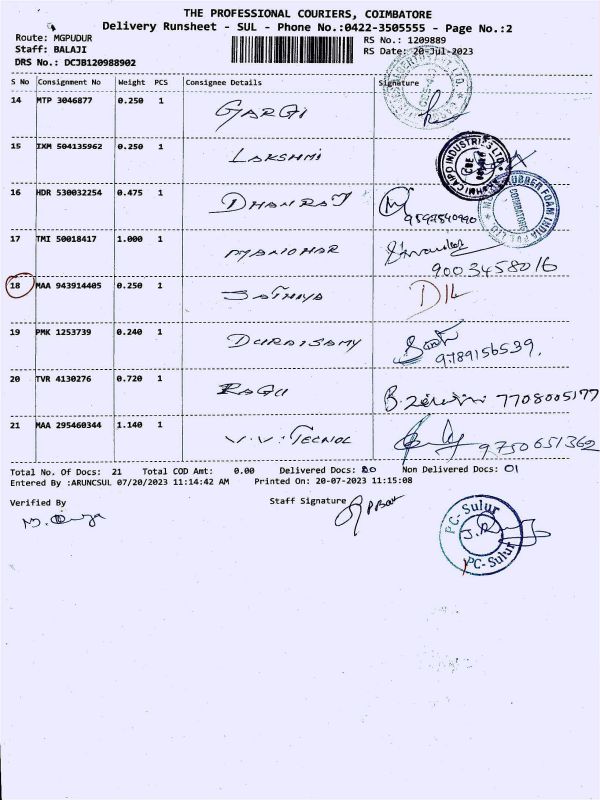 THE PROFESSIONAL COURIERS, COIMBATORE
Delivery Runsheet - SUL - Phone No.:0422-3505555 - Page No.:2
Route: MGPUDUR
RS No.: 1209889
Staff: BALAJI
RS Date: 20-Jul-2023
DRS No.: DCJB120988902
S No Consignment No Weight PCS Consignee Details Signature
14 MTP 3046877 0.250 1 GARGI
15 IXM 504135962 0.250 1 LAKSHMI
16 HDR 530032254 0.475 1 DHANRAJ 9597840990
17 TMI 50018417 1.000 1 MANOHAR 9003458016
18 MAA 943914405 0.250 1 SATHIYA D/L
19 PMK 1253739 0.240 1 DURAISAMY 9789156539.
20 TVR 4130276 0.720 1 RAGU 7708005177
21 MAA 295460344 1.140 1 V.V. TECNOL 9750651362
Total No. Of Docs: 21 Total COD Amt: 0.00 Delivered Docs: 20 Non Delivered Docs: 01
Entered By :ARUNCSUL 07/20/2023 11:14:42 AM Printed On: 20-07-2023 11:15:08
Verified By Staff Signature
PC-Sulur
PC-Sulur